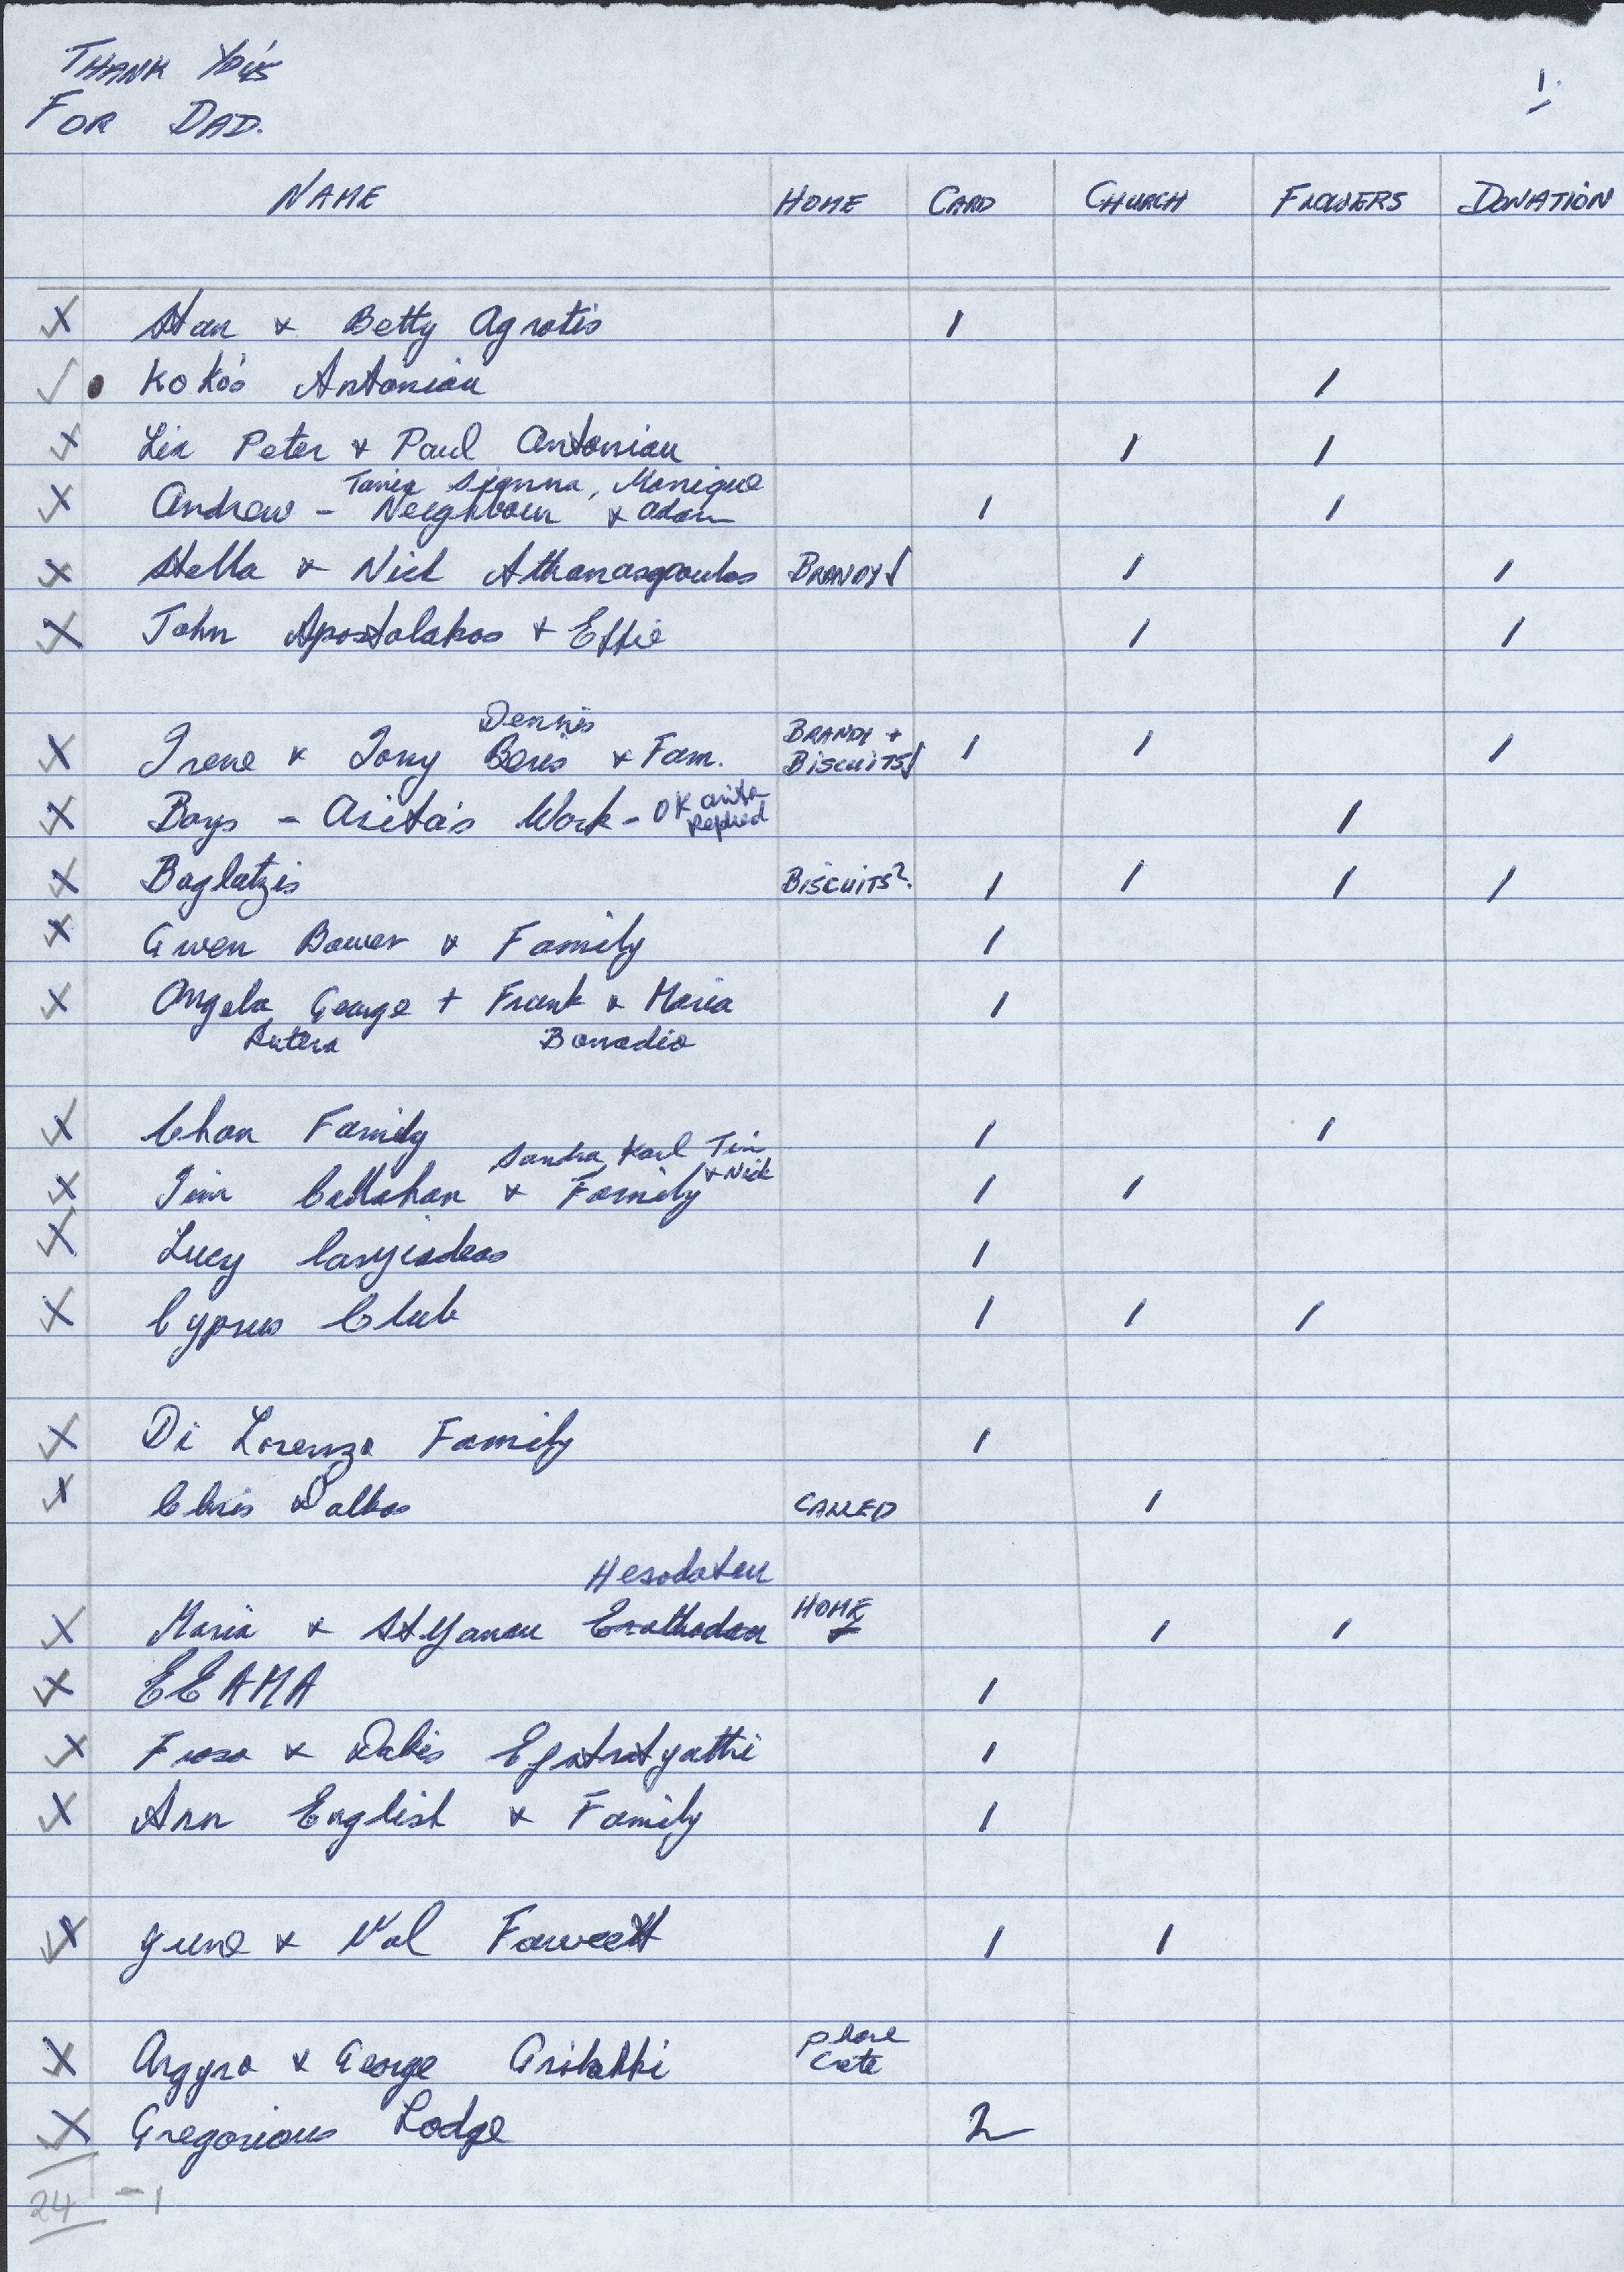 THANK YOU'S 1.
FOR DAD.
NAME HOME CARD CHURCH FLOWERS DONATION
X Stan & Betty Agrotis 1
✓ • Kokos Antoniou 1
X Lia Peter & Paul Antoniou 1 1
Tania Sienna, Monique
X Andrew - Neighbour & Adam 1 1
X Stella & Nick Athanasopoulos BRANDY✓ 1 1
X John Apostolakos & Effie 1 1
Dennis BRANDY +
X Irene & Tony Beris & Fam. BISCUITS✓ 1 1 1
X Boys - Arita's Work - OK Arita Replied 1
X Baglatzis BISCUITS?. 1 1 1 1
X Gwen Bower & Family 1
X Angela George + Frank & Maria 1
Bonadio
X Chan Family 1 1
Sandra, Karl Tim
X Jim Callahan & Family & Nick 1 1
X Lucy 1
X Cyprus Club 1 1 1
X Di Lorenzo Family 1
X Chris Dalkos CALLED 1
Hesodotou
X Maria & Stylianou HOME 1 1
X EEAMA 1
X & Dakis 1
X Ann English & Family 1
X June & Val Fawcett 1 1
X Argyro & George
X Gregorious Lodge 2
24 - 1